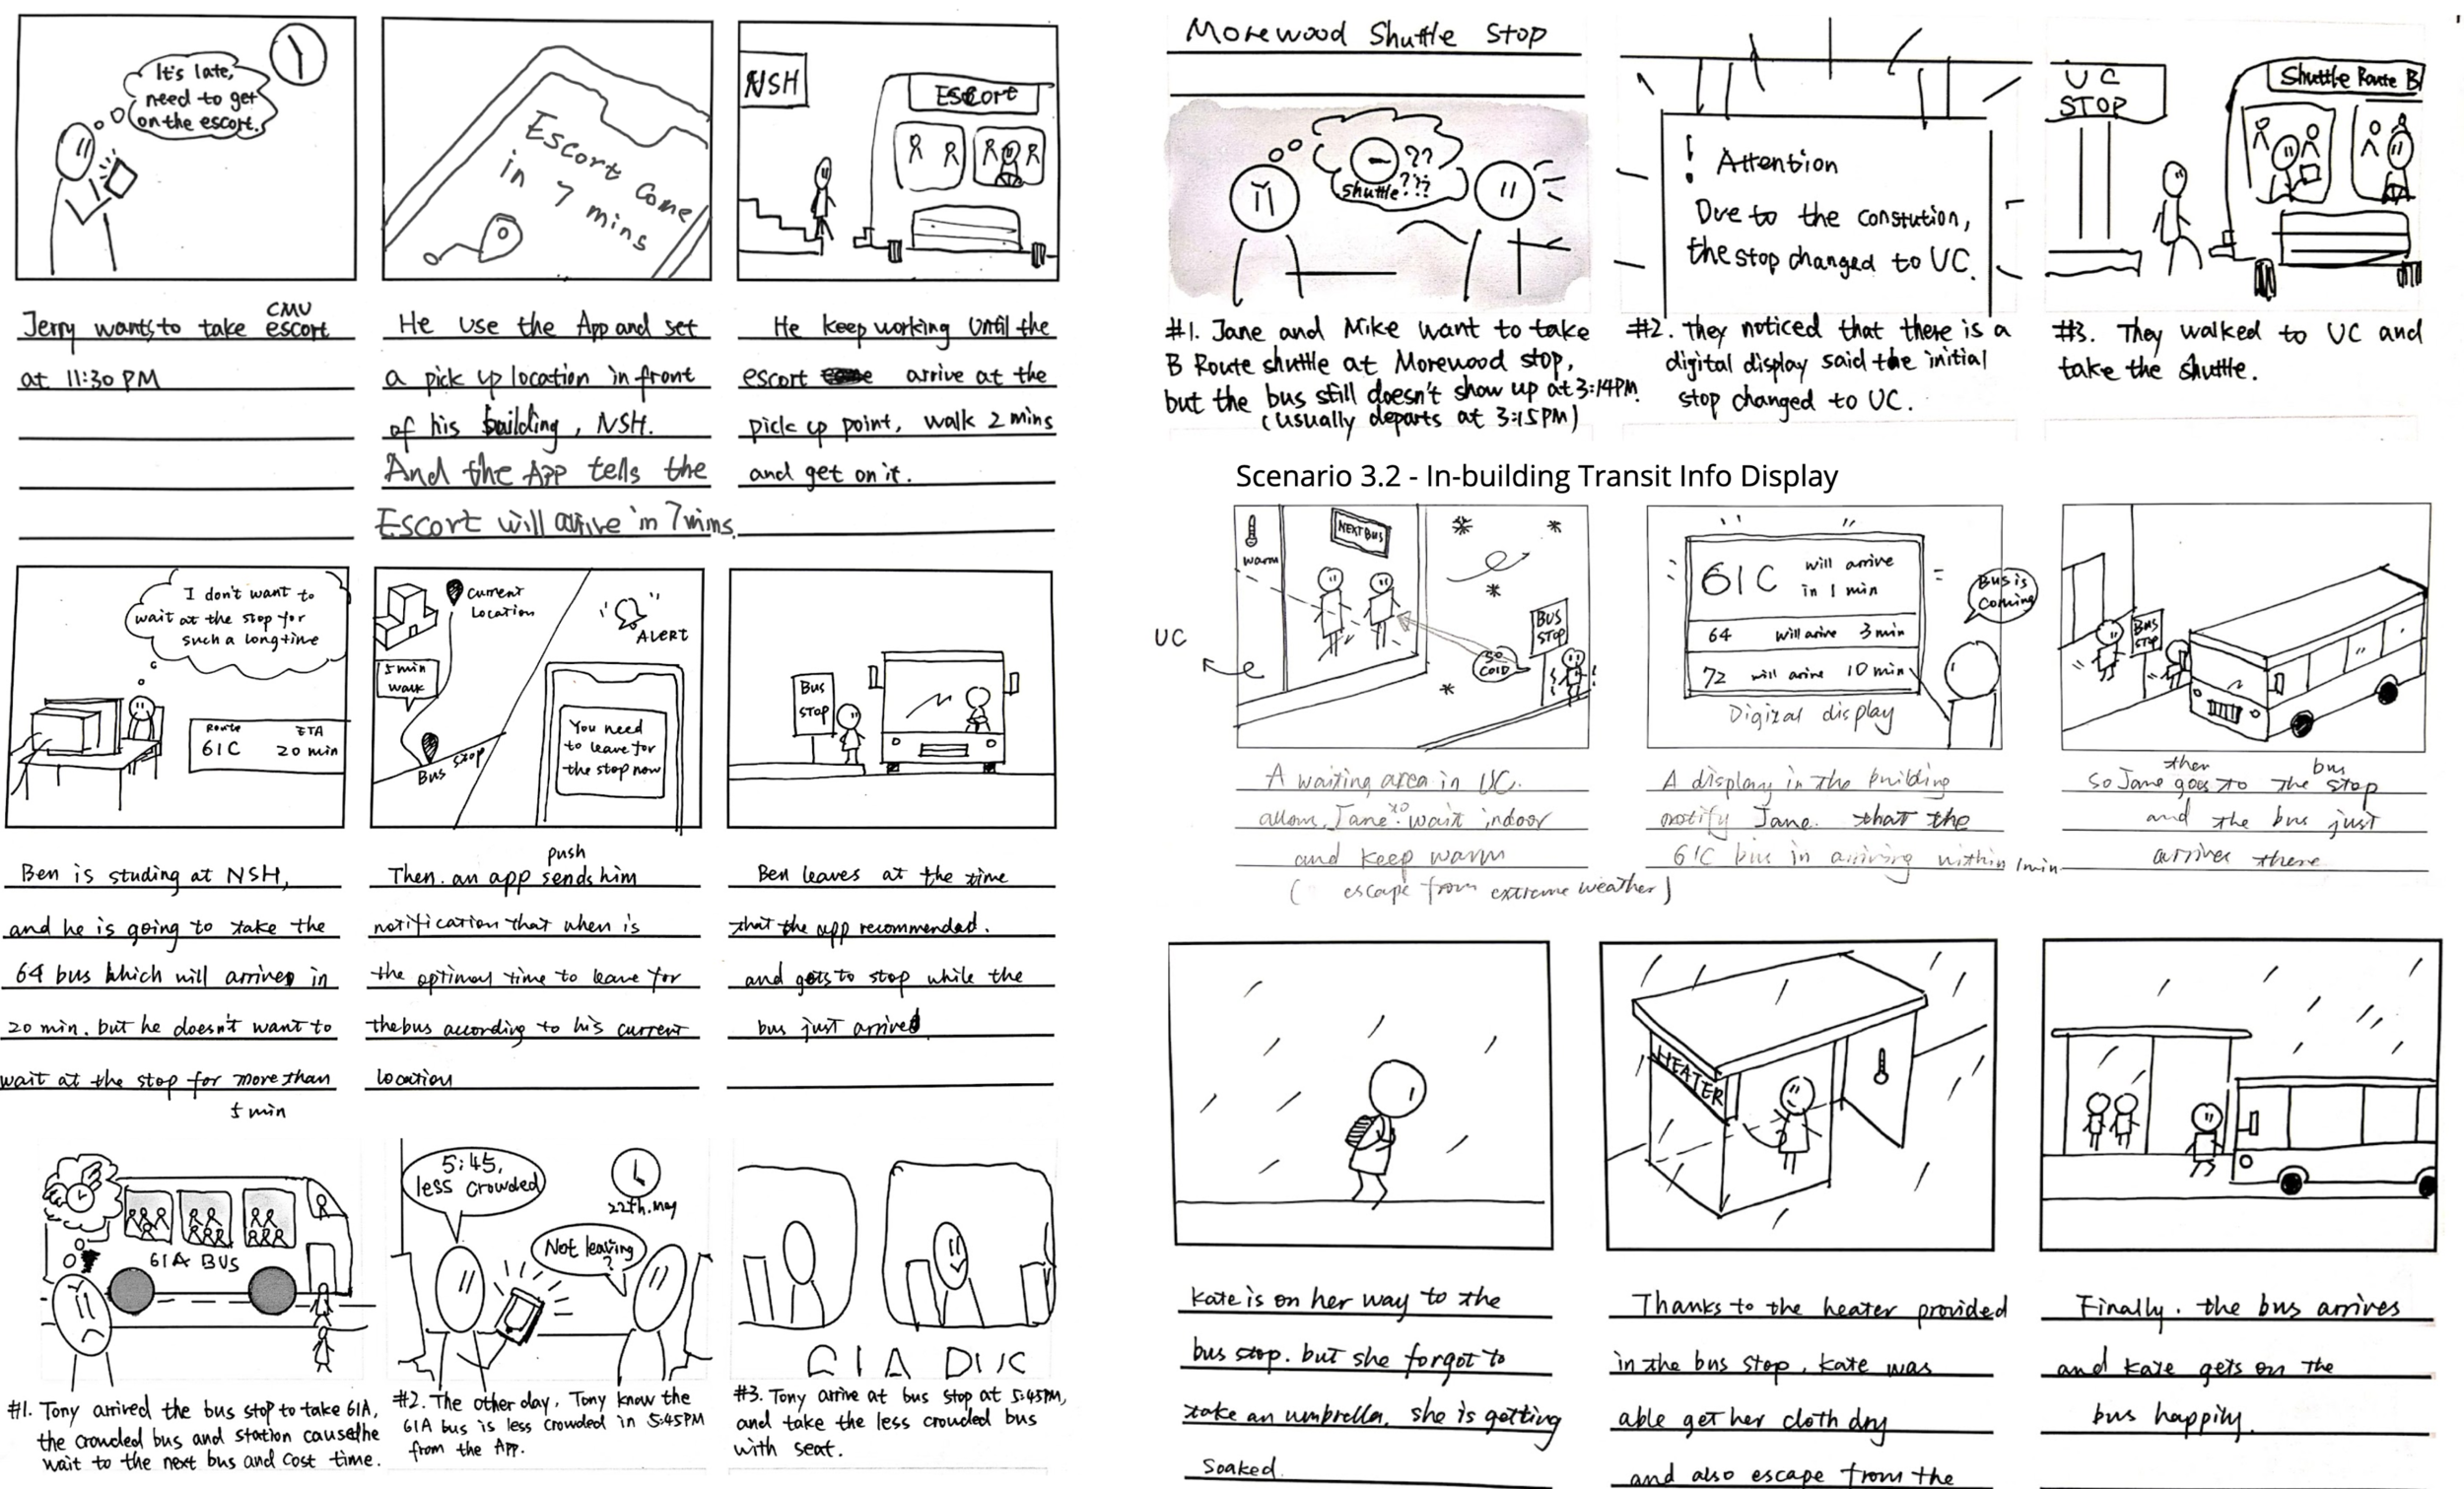 It's late,
need to get
on the escort.
Jerry wants to take CMU escort
at 11:30 PM
Escort Come
in 7 mins
He use the App and set
a pick up location in front
of his building, NSH.
And the App tells the
Escort will arrive in 7 mins.
NSH
Escort
He keep working until the
escort arrive at the
pick up point, walk 2 mins
and get on it.
I don't want to
wait at the stop for
such a long time
Route ETA
61C 20 min
Ben is studing at NSH,
and he is going to take the
64 bus which will arrives in
20 min. but he doesn't want to
wait at the stop for more than
5 min
Current
Location
5 min
walk
Bus stop
ALERT
You need
to leave for
the stop now
Then. an app sends him push
notification that when is
the optimal time to leave for
the bus according to his current
location
Bus
STOP
Ben leaves at the time
that the app recommended.
and gets to stop while the
bus just arrived
61A BUS
#1. Tony arrived the bus stop to take 61A,
the crowded bus and station cause he
wait to the next bus and cost time.
5:45,
less crowded
22th. May
Not leaving
?
#2. The other day, Tony know the
61A bus is less crowded in 5:45PM
from the App.
#3. Tony arrive at bus stop at 5:45PM,
and take the less crowded bus
with seat.
Morewood Shuttle Stop
??
Shuttle???
#1. Jane and Mike want to take
B Route shuttle at Morewood stop,
but the bus still doesn't show up at 3:14PM.
(usually departs at 3:15PM)
! Attention
Due to the constution,
the stop changed to UC.
#2. They noticed that there is a
digital display said the initial
stop changed to UC.
UC
STOP
Shuttle Route B
#3. They walked to UC and
take the shuttle.
Scenario 3.2 - In-building Transit Info Display
warm
NEXT BUS
UC
SO
COLD
BUS
STOP
A waiting area in UC.
allows Jane to wait indoor
and keep warm
( escape from extreme weather)
61C will arrive
in 1 min
64 will arive 3 min
72 will arive 10 min
Digital display
Bus is
coming
A display in the building
notify Jane. that the
61C bus in arriving within 1 min
BUS
STOP
so Jane then goes to the bus stop
and the bus just
arrives there
Kate is on her way to the
bus stop. but she forgot to
take an umbrella. she is getting
soaked.
HEATER
Thanks to the heater provided
in the bus stop, Kate was
able get her cloth dry
and also escape from the
Finally. the bus arrives
and Kate gets on the
bus happily.